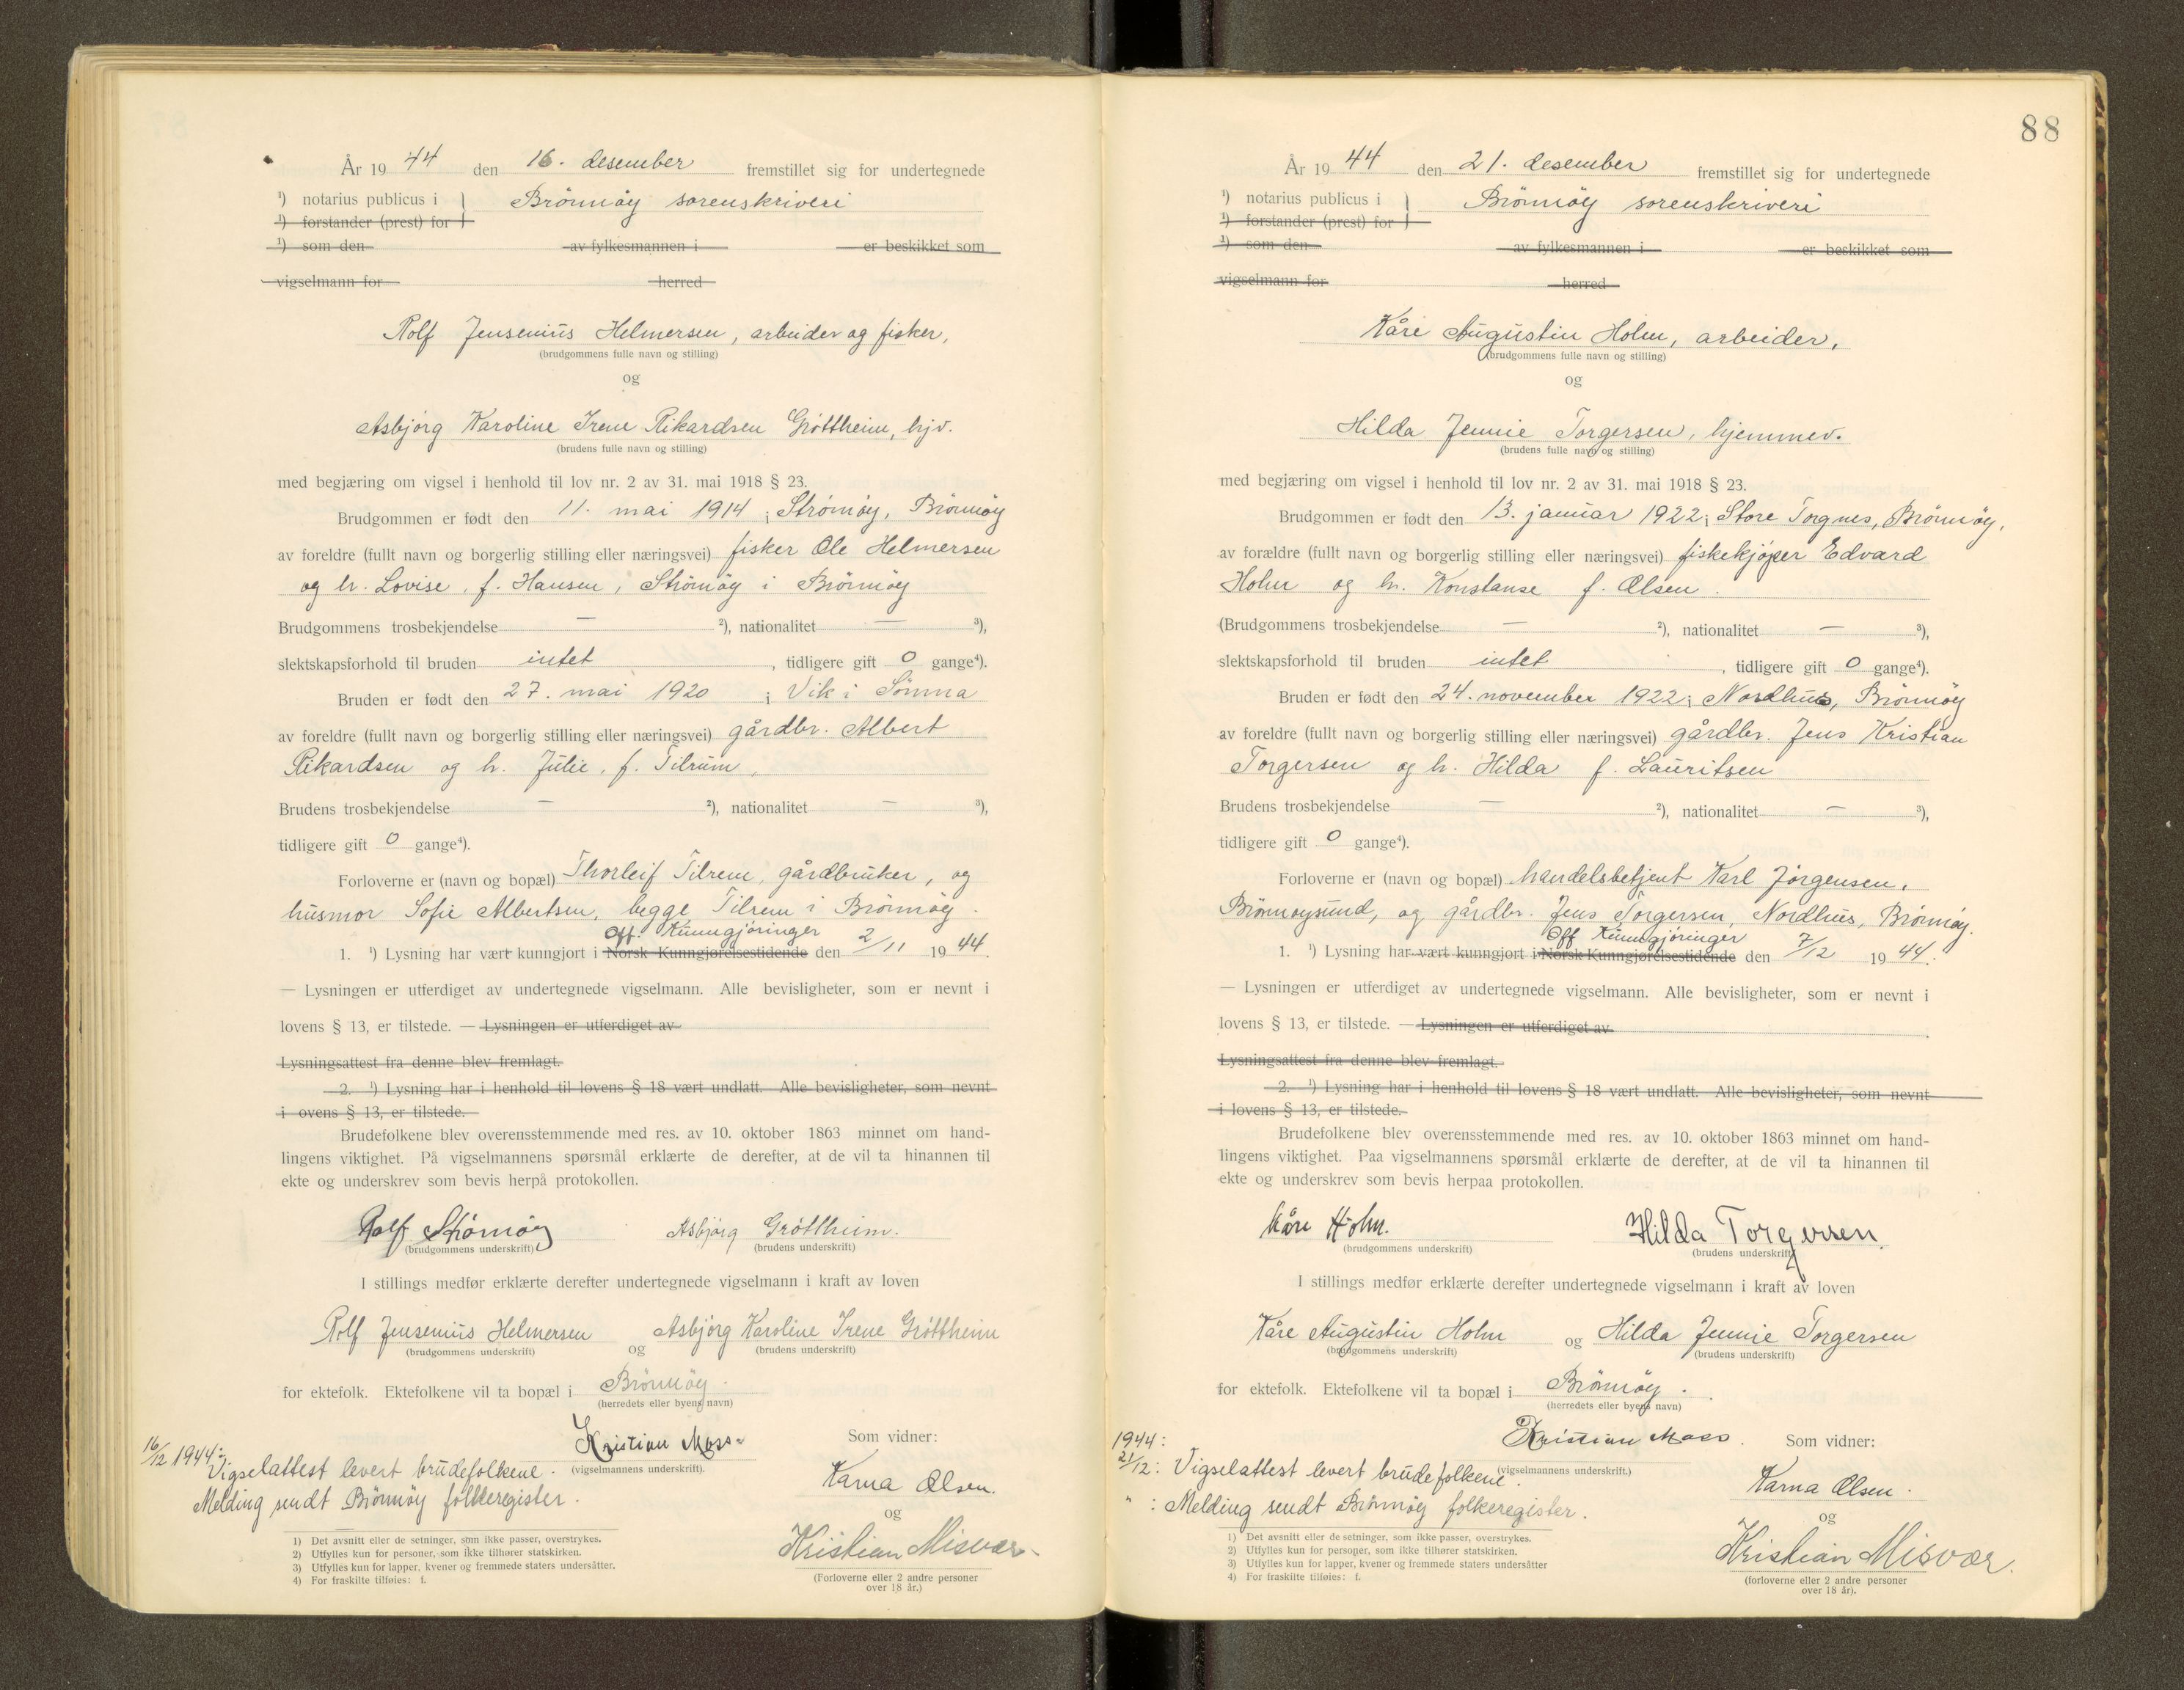 År 19 44 den 16. desember fremstillet sig for undertegnede
¹) notarius publicus i } Brönnöy sorenskriveri
¹) forstander (prest) for
¹) som den av fylkesmannen i er beskikket som
vigselmann for herred
Rolf Jensenius Helmersen, arbeider og fisker,
(brudgommens fulle navn og stilling)
og
Asbjörg Karoline Irene Rikardsen Gröttheim, hjv.
(brudens fulle navn og stilling)
med begjæring om vigsel i henhold til lov nr. 2 av 31. mai 1918 § 23.
Brudgommen er født den 11. mai 1914 i Strömöy, Brönnöy
av foreldre (fullt navn og borgerlig stilling eller næringsvei) fisker Ole Helmersen
og h. Lovise, f. Hansen, Strömöy i Brönnöy
Brudgommens trosbekjendelse — ²), nationalitet — ³),
slektskapsforhold til bruden intet, tidligere gift 0 gange⁴).
Bruden er født den 27. mai 1920 i Vik i Sömna
av foreldre (fullt navn og borgerlig stilling eller næringsvei) gårdbr. Albert
Rikardsen og h. Julie, f. Tilrum,
Brudens trosbekjendelse — ²), nationalitet — ³),
tidligere gift 0 gange⁴).
Forloverne er (navn og bopæl) Thorleif Tilrem, gårdbruker, og
husmor Sofie Albertsen, begge Tilrem i Brönnöy.
Off. Kunngjöringer
1. ¹) Lysning har vært kunngjort i Norsk Kunngjørelsestidende den 2/11 19 44.
— Lysningen er utferdiget av undertegnede vigselmann. Alle bevisligheter, som er nevnt i
lovens § 13, er tilstede. — Lysningen er utferdiget av
Lysningsattest fra denne blev fremlagt.
2. ¹) Lysning har i henhold til lovens § 18 vært undlatt. Alle bevisligheter, som nevnt
i ovens § 13, er tilstede.
Brudefolkene blev overensstemmende med res. av 10. oktober 1863 minnet om hand-
lingens viktighet. På vigselmannens spørsmål erklærte de derefter, at de vil ta hinannen til
ekte og underskrev som bevis herpå protokollen.
Rolf Strömöy Asbjörg Gröttheim.
(brudgommens underskrift) (brudens underskrift)
I stillings medfør erklærte derefter undertegnede vigselmann i kraft av loven
Rolf Jensenius Helmersen og Asbjörg Karoline Irene Gröttheim
(brudgommens underskrift) (brudens underskrift)
for ektefolk. Ektefolkene vil ta bopæl i Brönnöy.
(herredets eller byens navn)
Kristian Moss Som vidner:
(vigselmannens underskrift).
16/12 1944: Vigselattest levert brudefolkene.
Melding sendt Brönnöy folkeregister.
Karna Olsen.
og
Kristian Misvær
(Forloverne eller 2 andre personer
over 18 år.)
1) Det avsnitt eller de setninger, som ikke passer, overstrykes.
2) Utfylles kun for personer, som ikke tilhører statskirken.
3) Utfylles kun for lapper, kvener og fremmede staters undersåtter.
4) For fraskilte tilføies: f.
88
År 19 44 den 21. desember fremstillet sig for undertegnede
¹) notarius publicus i } Brönnöy sorenskriveri
¹) forstander (prest) for
¹) som den av fylkesmannen i er beskikket som
vigselmann for herred
Kåre Augustin Holm, arbeider,
(brudgommens fulle navn og stilling)
og
Hilda Jennie Torgersen, hjemmev.
(brudens fulle navn og stilling)
med begjæring om vigsel i henhold til lov nr. 2 av 31. mai 1918 § 23.
Brudgommen er født den 13. januar 1922 i Store Torgnes, Brönnöy,
av forældre (fullt navn og borgerlig stilling eller næringsvei) fiskekjöper Edvard
Holm og h. Konstanse f. Olsen.
(Brudgommens trosbekjendelse — ²), nationalitet — ³),
slektskapsforhold til bruden intet, tidligere gift 0 gange⁴).
Bruden er født den 24. november 1922 i Nordhus, Brönnöy
av foreldre (fullt navn og borgerlig stilling eller næringsvei) gårdbr. Jens Kristian
Torgersen og h. Hilda f. Lauritsen
Brudens trosbekjendelse — ²), nationalitet — ³),
tidligere gift 0 gange⁴).
Forloverne er (navn og bopæl) handelsbetjent Karl Jörgensen,
Brönnöysund, og gårdbr. Jens Torgersen, Nordhus, Brönnöy.
Off Kunngjöringer
1. ¹) Lysning har vært kunngjort i Norsk Kunngjørelsestidende den 7/12 19 44.
— Lysningen er utferdiget av undertegnede vigselmann. Alle bevisligheter, som er nevnt i
lovens § 13, er tilstede. — Lysningen er utferdiget av
Lysningsattest fra denne blev fremlagt.
2. ¹) Lysning har i henhold til lovens § 18 vært undlatt. Alle bevisligheter, som nevnt
i lovens § 13, er tilstede.
Brudefolkene blev overensstemmende med res. av 10. oktober 1863 minnet om hand-
lingens viktighet. Paa vigselmannens spørsmål erklærte de derefter, at de vil ta hinannen til
ekte og underskrev som bevis herpaa protokollen.
Kåre Holm. Hilda Torgersen.
(brudgommens underskrift) (brudens underskrift)
I stillings medfør erklærte derefter undertegnede vigselmann i kraft av loven
Kåre Augustin Holm og Hilda Jennie Torgersen
(brudgommens underskrift) (brudens underskrift)
for ektefolk. Ektefolkene vil ta bopæl i Brönnöy.
(herredets eller byens navn)
Kristian Moss. Som vidner:
(vigselmannens underskrift.)
1944:
21/12: Vigselattest levert brudefolkene.
" : Melding sendt Brönnöy folkeregister.
Karna Olsen.
og
Kristian Misvær.
(forloverne eller 2 andre personer
over 18 år).
1) Det avsnitt eller de setninger, som ikke passer, overstrykes.
2) Utfylles kun for personer, som ikke tilhører statskirken.
3) Utfylles kun for lapper, kvener og fremmede staters undersåtter
4) For fraskilte tilføies: f.